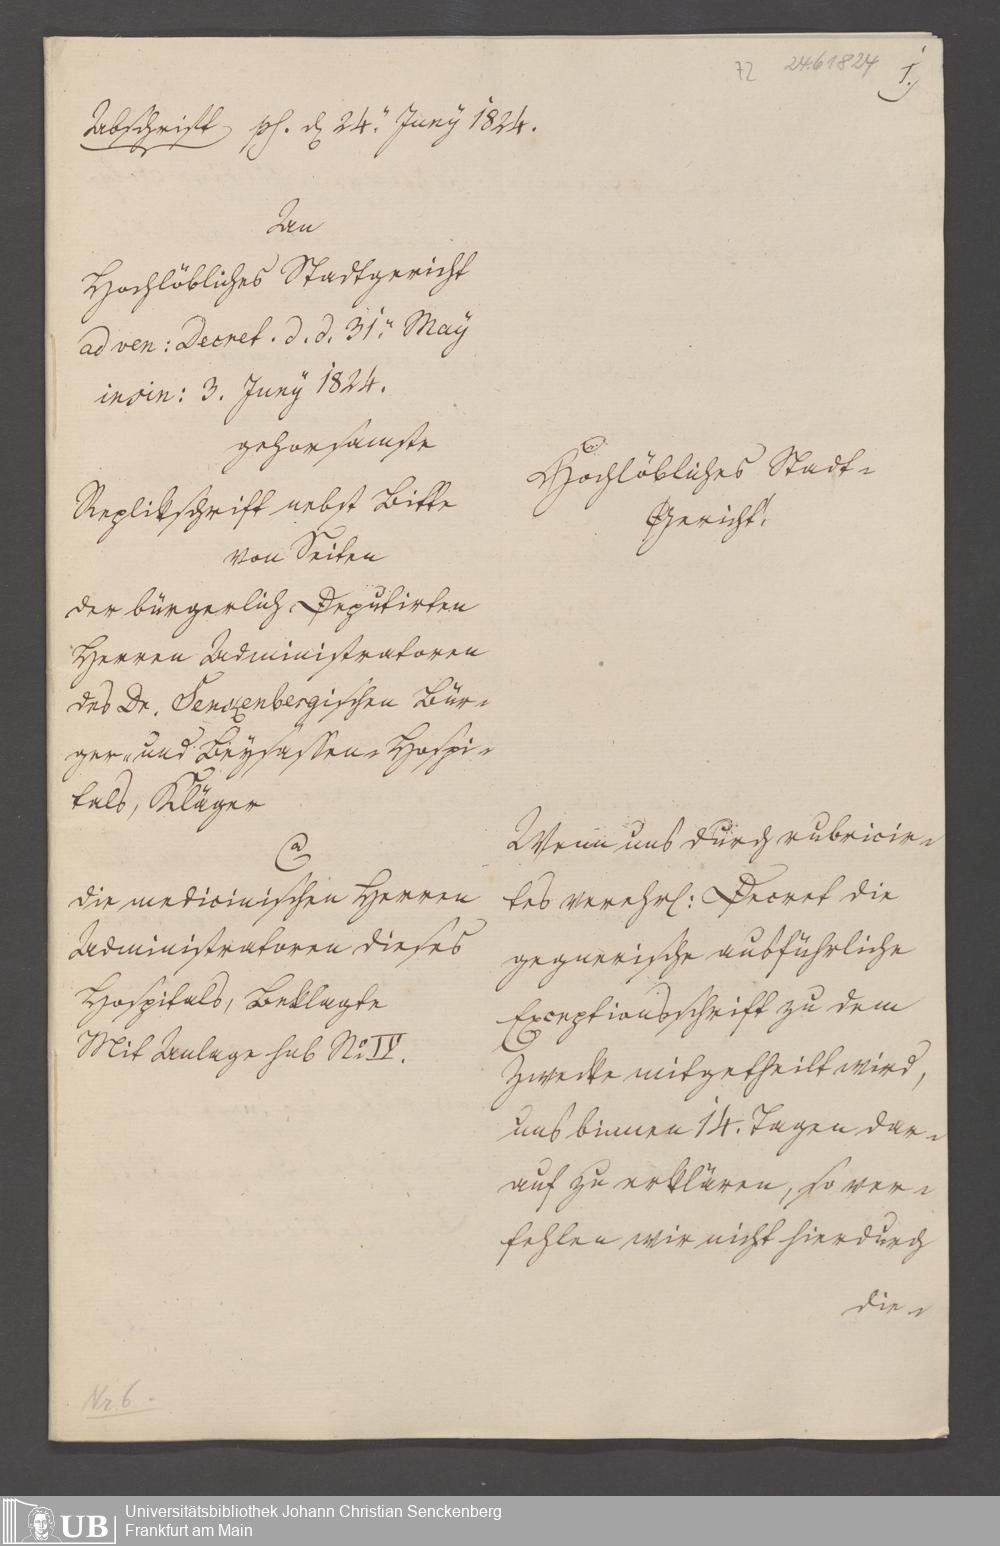 72 24.6 1824 1.
Abschrift ps. d. 24.ⁿ Juny 1824.
An
Hochlöbliches Stadtgericht
ad ven: Decret. d. d. 31.ⁿ May
insin: 3. Juny 1824.
gehorsamste
Replikschrift nebst Bitte
von Seiten
der bürgerlich Deputirten
Herren Administratoren
des Dr. Senckenbergischen Bür-
ger- und Beysassen-Hospi-
tals, Kläger
Ca
die medicinischen Herren
Administratoren dieses
Hospitals, Beklagte
Mit Anlage sub No IV.
Hochlöbliches Stadt-
Gericht!
Wenn uns durch rubricir-
tes verehrl: Decret die
gegnerische ausführliche
Exceptionsschrift zu dem
Zwecke mitgetheilt wird,
uns binnen 14. Tagen dar-
auf zu erklären, so ver-
fehlen wir nicht hierdurch
die-
Nr. 6.
UB
Universitätsbibliothek Johann Christian Senckenberg
Frankfurt am Main